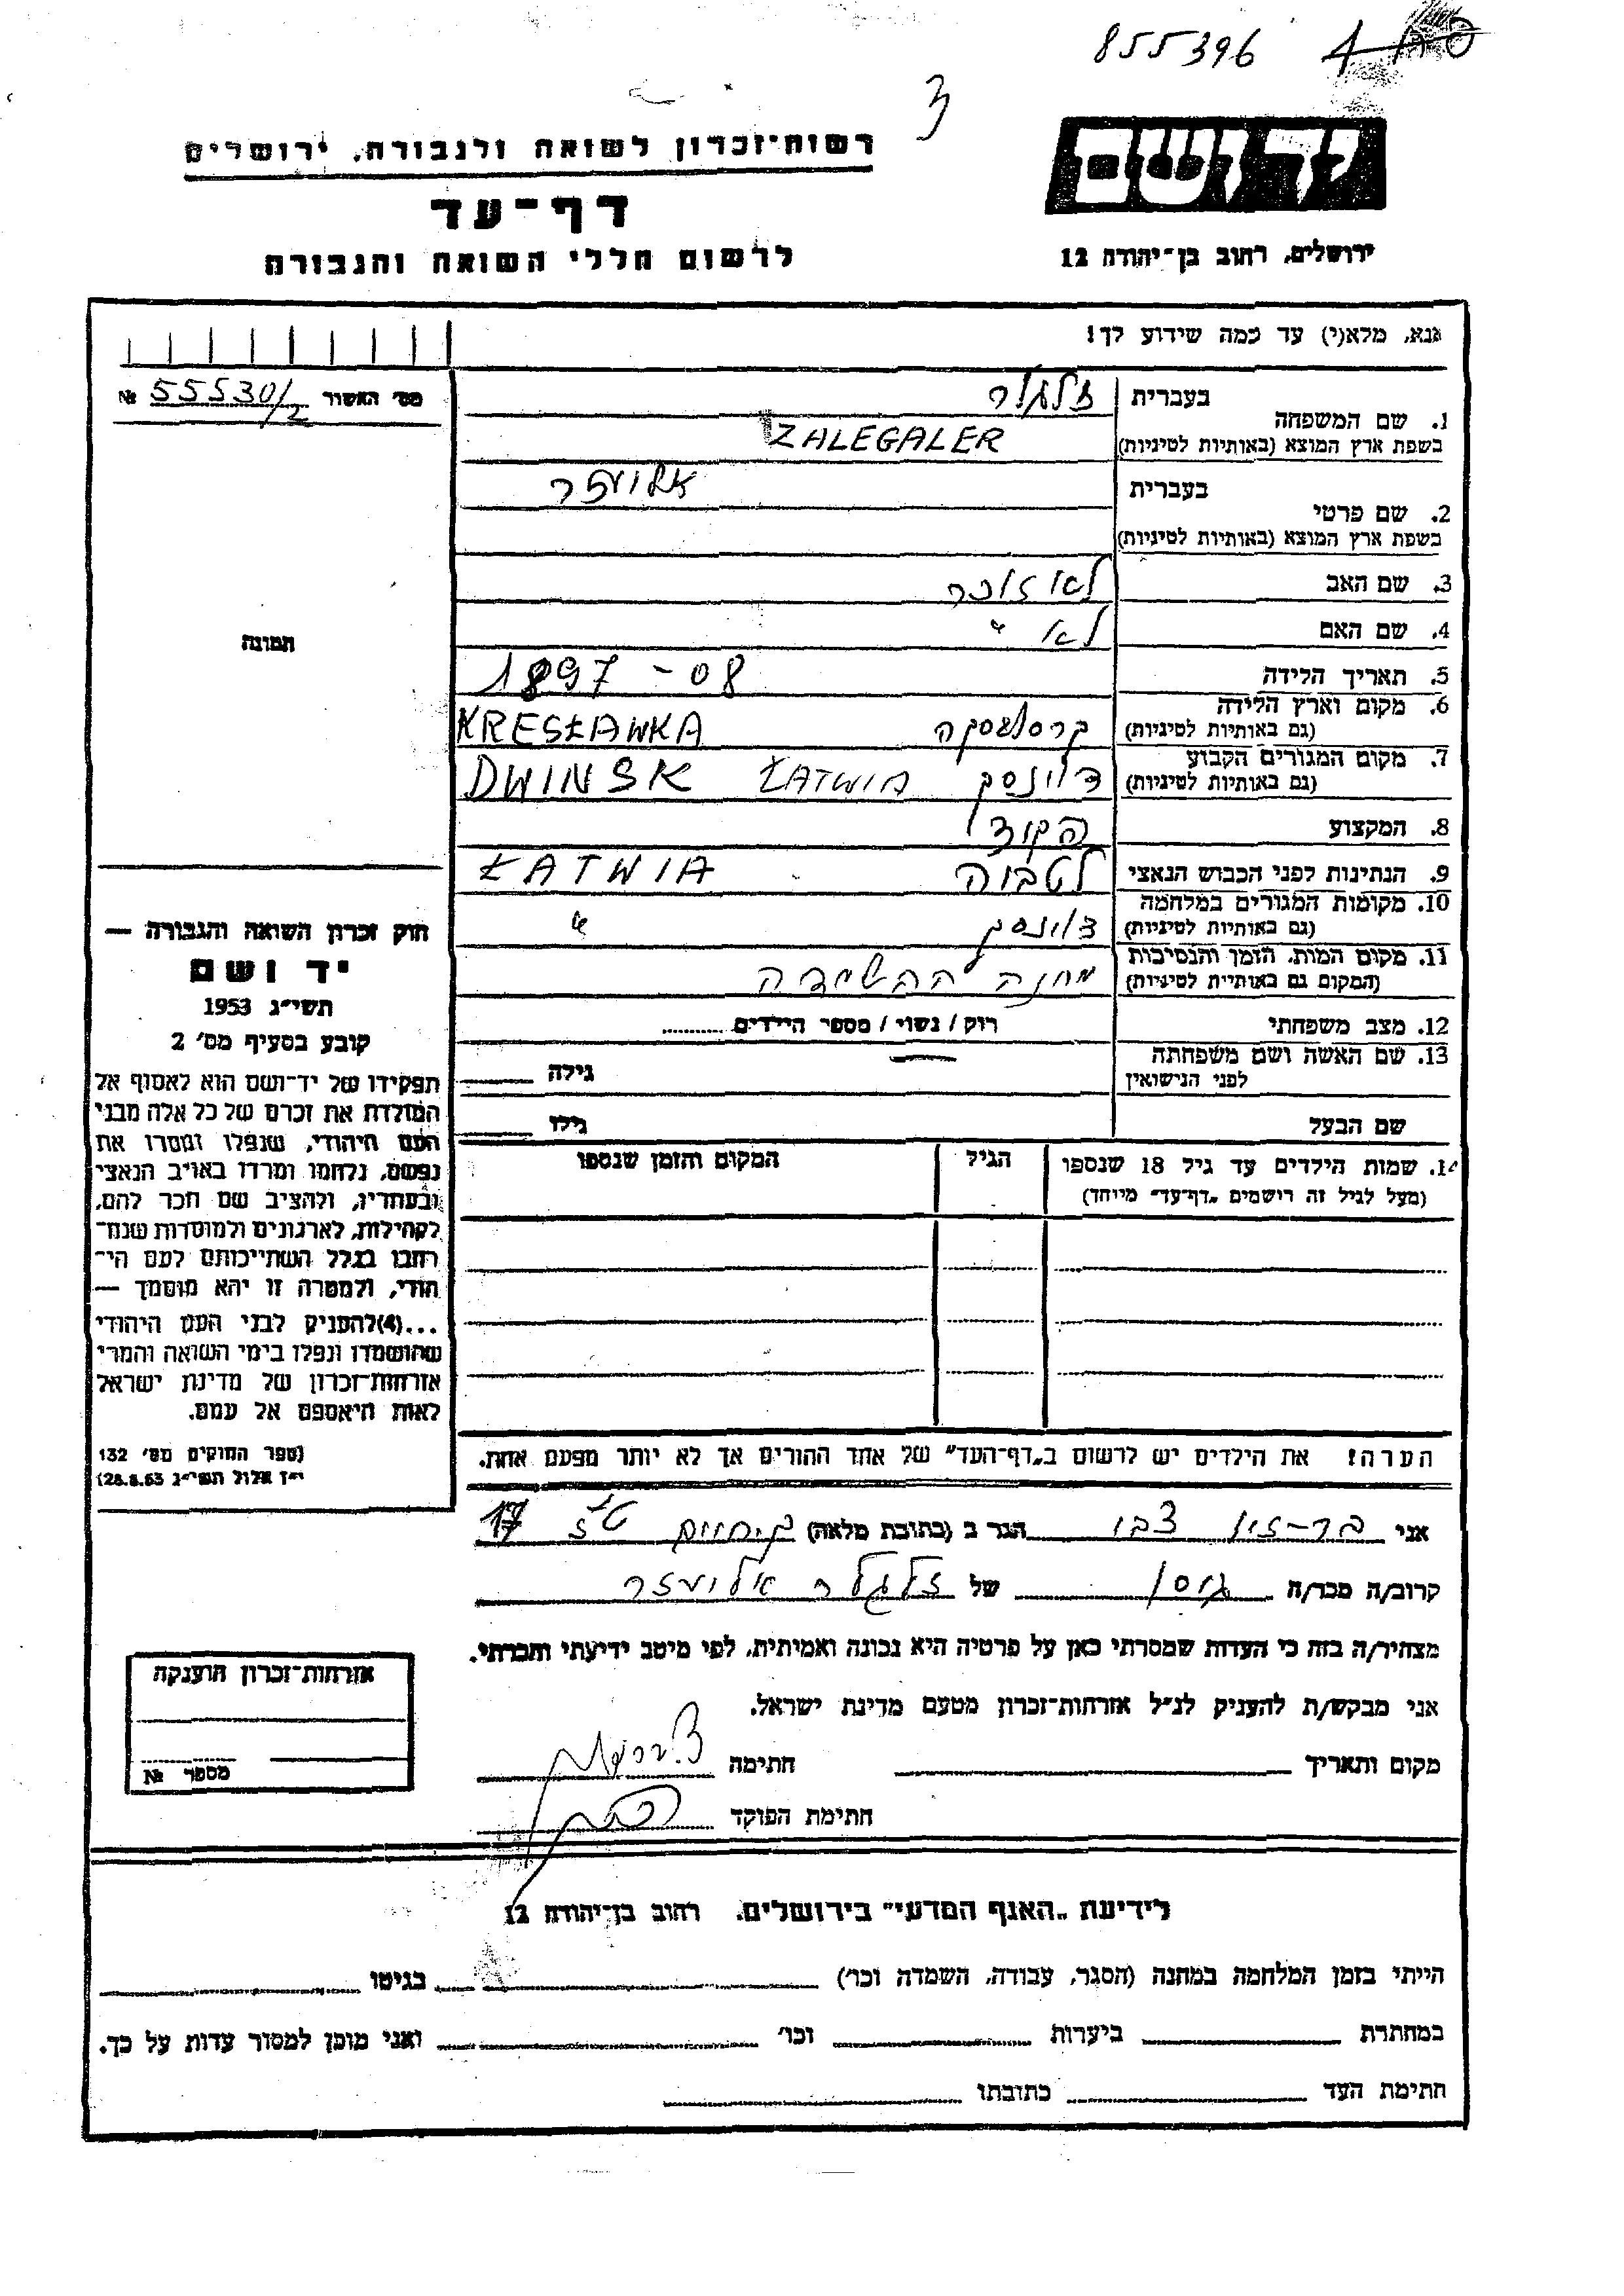 855396
3
יד ושם
רשות־זכרון לשואה ולגבורה, ירושלים
דף-עד
לרשום חללי השואה והגבורה
ירושלים, רחוב בן־יהודה 12
אנא, מלא(י) עד כמה שידוע לך!
מס׳ האשור 55530/2 №
תמונה
1. שם המשפחה
בעברית זלגלר
בשפת ארץ המוצא (באותיות לטיניות) ZALEGALER
2. שם פרטי
בעברית אליעזר
בשפת ארץ המוצא (באותיות לטיניות)
3. שם האב לא זוכר
4. שם האם לא "
5. תאריך הלידה 1897 - 08
6. מקום וארץ הלידה קרסלבסקה KRESŁAWKA
(גם באותיות לטיניות)
7. מקום המגורים הקבוע דוינסק ŁATWIA DWINSK
(גם באותיות לטיניות)
8. המקצוע פקיד
9. הנתינות לפני הכבוש הנאצי לטביה ŁATWIA
10. מקומות המגורים במלחמה דוינסק "
(גם באותיות לטיניות)
11. מקום המות, הזמן והנסיבות מחנה השמדה
(המקום גם באותיות לטיניות)
12. מצב משפחתי רוק / נשוי / מספר הילדים
13. שם האשה ושם משפחתה
לפני הנישואין גילה
שם הבעל גילו
14. שמות הילדים עד גיל 18 שנספו הגיל המקום והזמן שנספו
(מעל לגיל זה רושמים „דף־עד" מיוחד)
הערה! את הילדים יש לרשום ב„דף־העד" של אחד ההורים אך לא יותר מפעם אחת.
חוק זכרון השואה והגבורה —
יד ושם
תשי״ג 1953
קובע בסעיף מס׳ 2
תפקידו של יד־ושם הוא לאסוף אל
המולדת את זכרם של כל אלה מבני
העם היהודי, שנפלו ומסרו את
נפשם, נלחמו ומרדו באויב הנאצי
ובעוזריו, ולהציב שם וזכר להם,
לקהילות, לארגונים ולמוסדות שנח־
רבו בגלל השתייכותם לעם הי־
הודי, ולמטרה זו יהא מוסמך —
...(4)להעניק לבני העם היהודי
שהושמדו ונפלו בימי השואה והמרי
אזרחות־זכרון של מדינת ישראל
לאות היאספם אל עמם.
(ספר החוקים מס׳ 132
י״ז אלול תשי״ג 28.8.53)
אני בר-זיו צבי הגר ב (כתובת מלאה) 17
קרוב/ה מכר/ה גיסו של זלגלר אליעזר
מצהיר/ה בזה כי העדות שמסרתי כאן על פרטיה היא נכונה ואמיתית, לפי מיטב ידיעתי והכרתי.
אני מבקש/ת להעניק לנ״ל אזרחות־זכרון מטעם מדינת ישראל.
מקום ותאריך חתימה
חתימת הפוקד
אזרחות־זכרון הוענקה
מספר №
לידיעת „האגף המדעי" בירושלים, רחוב בן־יהודה 12
הייתי בזמן המלחמה במחנה (הסגר, עבודה, השמדה וכו׳) בגיטו
במחתרת ביערות וכו׳ ואני מוכן למסור עדות על כך.
חתימת העד כתובתו